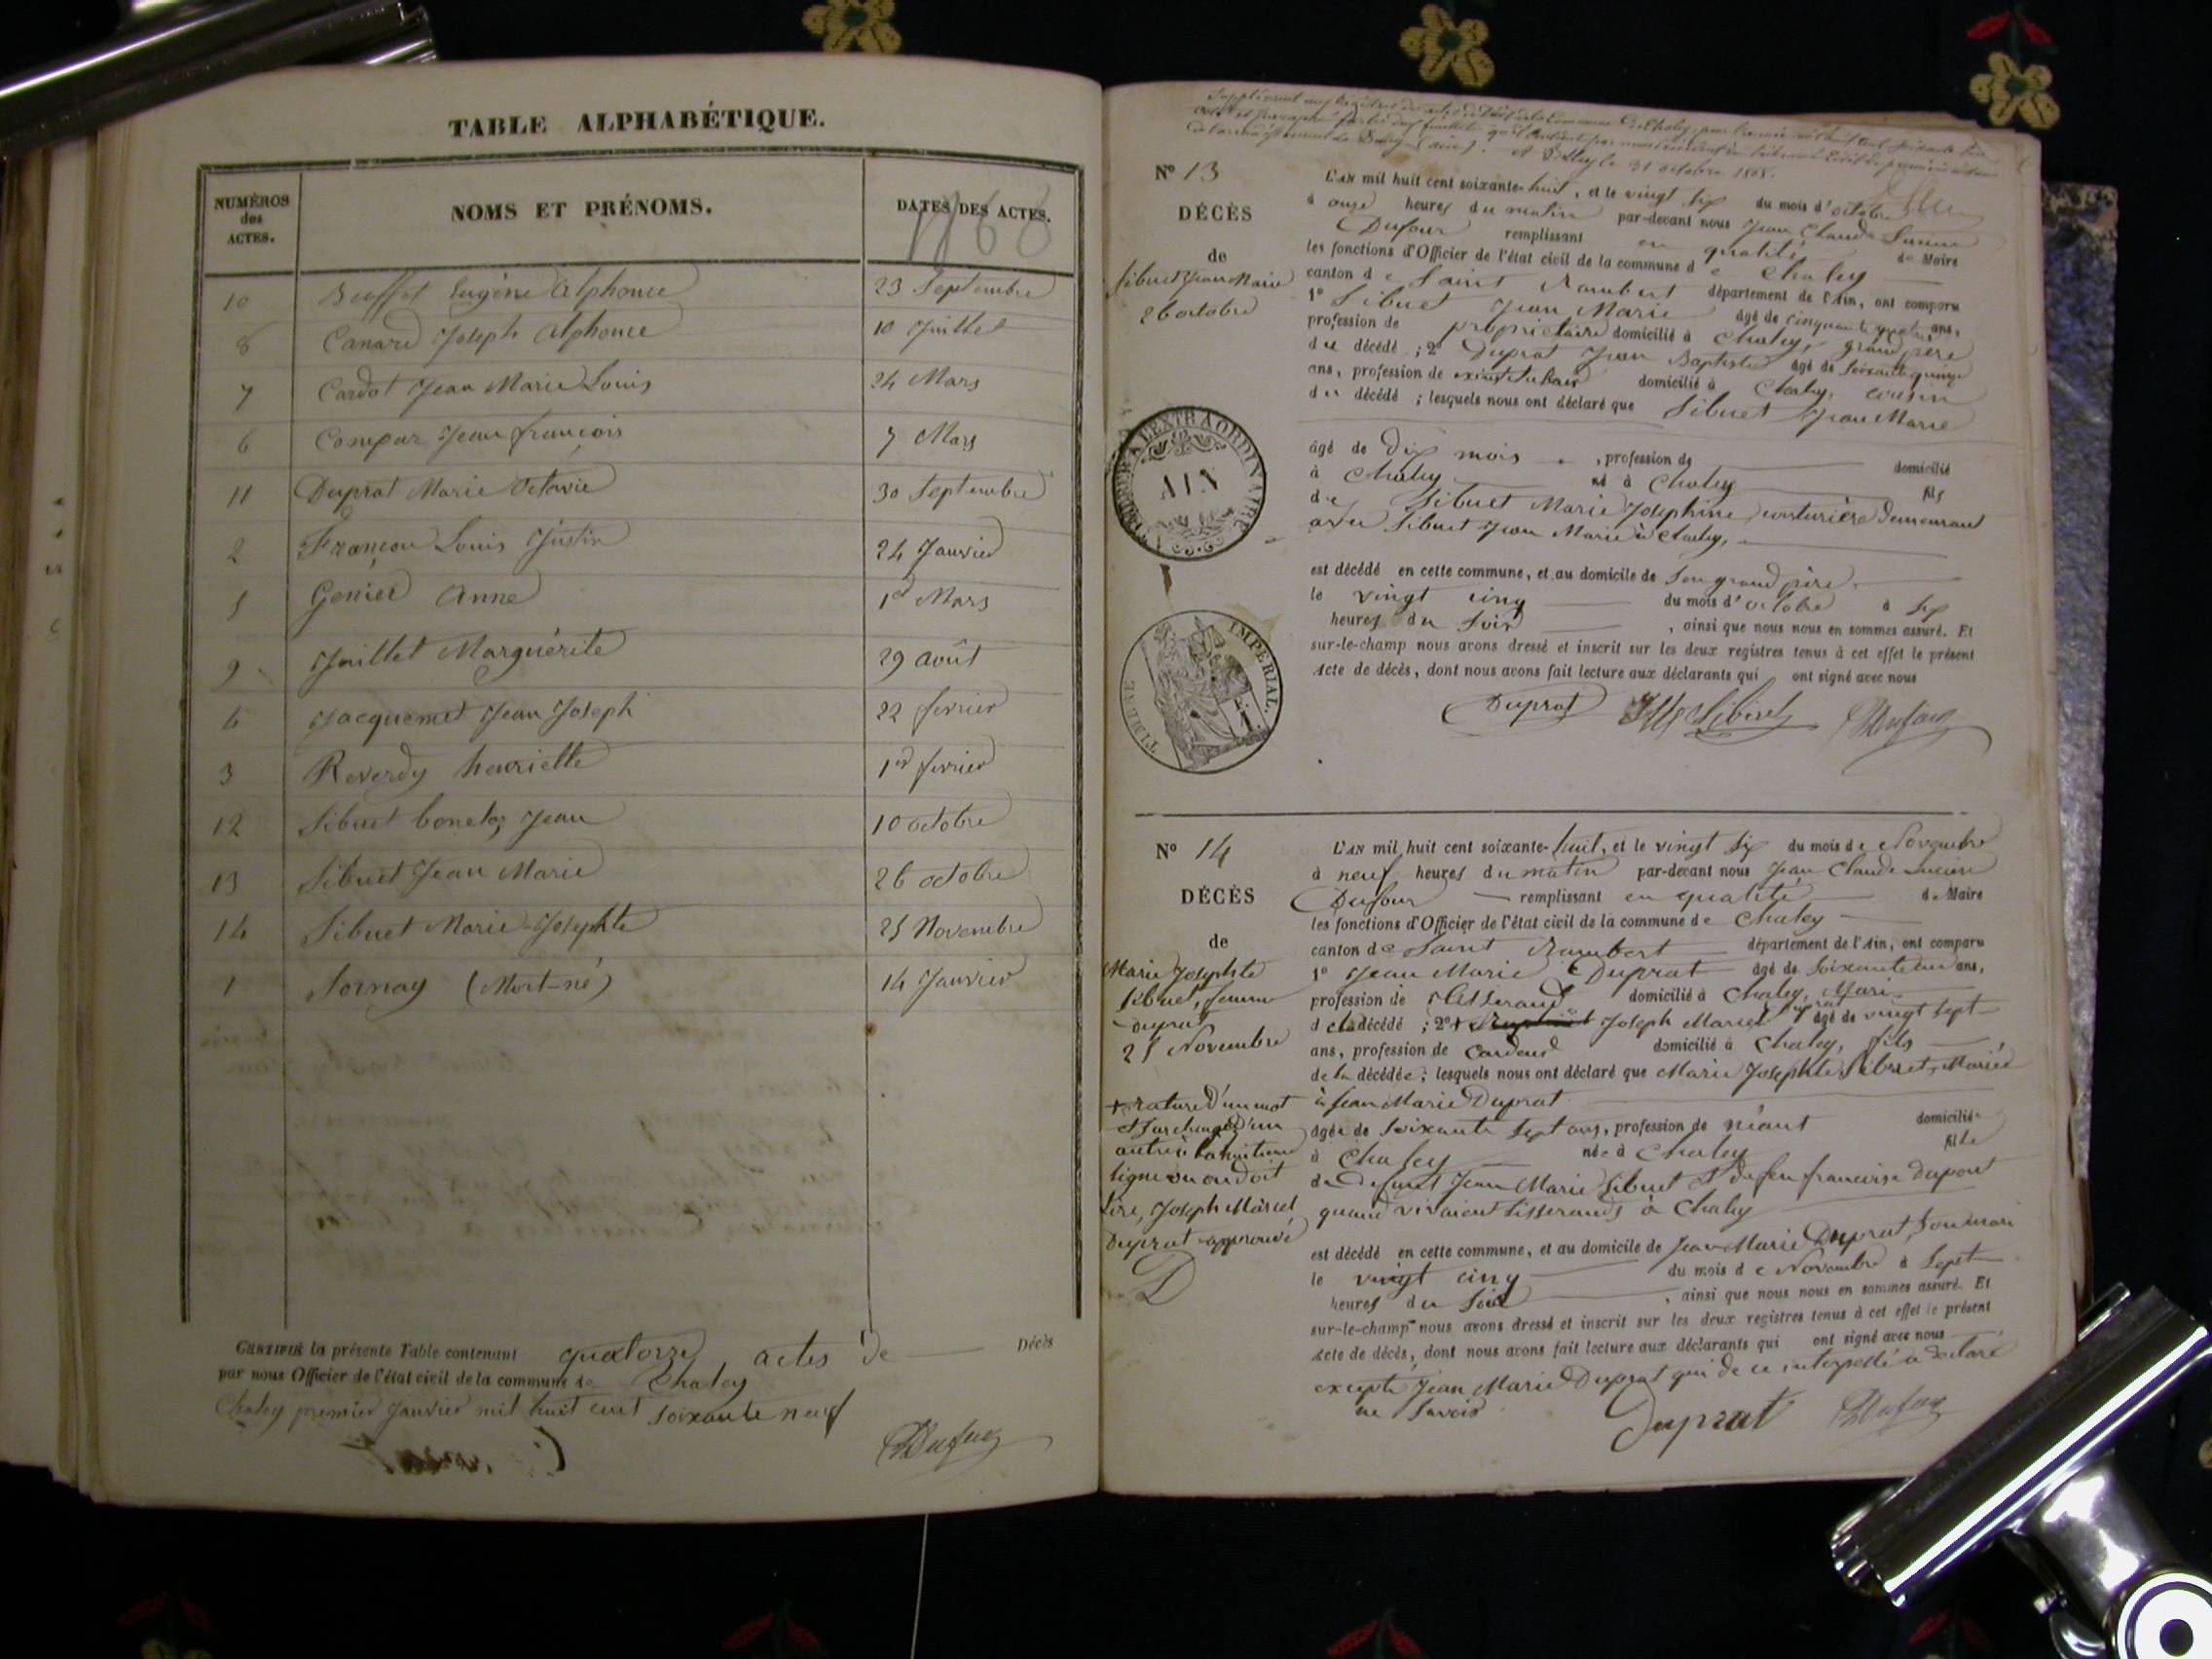 TABLE ALPHABÉTIQUE.
NUMÉROS des ACTES.
NOMS ET PRÉNOMS.
DATES DES ACTES.
1868
10 Buffet Eugène Alphonse 23 Septembre
8 Canard Joseph Alphonse 10 Juillet
7 Cardot Jean Marie Louis 24 Mars
6 Compar Jean françois 7 Mars
11 Duprat Marie Octavie 30 Septembre
2 Françon Louis Justin 24 Janvier
5 Genier Anne 1er Mars
9 Juillet Marguérite 29 août
6 Jacquemet Jean Joseph 22 fevrier
3 Reverdy henriette 1er fevrier
12 Sibuet bonetoz Jean 10 octobre
13 Sibuet Jean Marie 26 octobre
14 Sibuet Marie-Josephte 25 Novembre
1 Tornay (Mort-né) 14 Janvier
CERTIFIÉ la présente Table contenant quatorze actes de Décès
par nous Officier de l'état civil de la commune de Chaley
Chaley premier Janvier mil huit cent soixante neuf
Dufour
Supplément aux Registres des actes de Décès de la Commune de Chaley, pour l'année mil huit cent soixante huit
de l'arrondissement de Belley (Ain). A Belley le 31 octobre 1868.
N° 13
DÉCÈS
de
Sibuet Jean Marie
26 octobre
L'AN mil huit cent soixante-huit, et le vingt six du mois d'octobre
à onze heures du matin par-devant nous Jean Claude Lucien
Dufour remplissant en qualité de Maire
les fonctions d'Officier de l'état civil de la commune de Chaley
canton de Saint Rambert département de l'Ain, ont comparu
1° Sibuet Jean Marie âgé de cinquante quatre ans,
profession de propriétaire domicilié à Chaley, grand père
du décédé ; 2° Duprat Jean Baptiste âgé de soixante quinze
ans, profession de domicilié à Chaley, cousin
du décédé ; lesquels nous ont déclaré que Sibuet Jean Marie
âgé de Dix mois, profession de domicilié
à Chaley né à Chaley fils
de Sibuet Marie Josephine, couturière demeurant
avec Sibuet Jean Marie à Chaley,
est décédé en cette commune, et au domicile de son grand père
le vingt cinq du mois d'octobre à six
heures du soir, ainsi que nous nous en sommes assuré. Et
sur-le-champ nous avons dressé et inscrit sur les deux registres tenus à cet effet le présent
Acte de décès, dont nous avons fait lecture aux déclarants qui ont signé avec nous
Duprat Sibuet Dufour
A L'EXTRAORDINAIRE
AIN
TIMBRE IMPERIAL.
N° 14
DÉCÈS
de
Marie Josephte
Sibuet, femme
Duprat
25 Novembre
+ rature d'un mot
et surcharge d'un
autre à la huitieme
ligne ou on doit
lire, Joseph Marcel
Duprat approuvé
D
L'AN mil huit cent soixante-huit, et le vingt six du mois de Novembre
à neuf heures du matin par-devant nous Jean Claude Lucien
Dufour remplissant en qualité de Maire
les fonctions d'Officier de l'état civil de la commune de Chaley
canton de Saint Rambert département de l'Ain, ont comparu
1° Jean Marie Duprat âgé de soixante un ans,
profession de Tisserand domicilié à Chaley, Mari
de la décédé ; 2° + Joseph Marcel Duprat âgé de vingt sept
ans, profession de Cardeur domicilié à Chaley, fils
de la décédée ; lesquels nous ont déclaré que Marie Josephte Sibuet, Mariée
à Jean Marie Duprat
âgée de soixante sept ans, profession de néant domiciliée
à Chaley née à Chaley fille
de defunt Jean Marie Sibuet et de feu francoise Dupont
quand vivaient tisserands à Chaley
est décédé en cette commune, et au domicile de Jean Marie Duprat, son mari
le vingt cinq du mois de Novembre à sept
heures du soir, ainsi que nous nous en sommes assuré. Et
sur-le-champ nous avons dressé et inscrit sur les deux registres tenus à cet effet le présent
Acte de décès, dont nous avons fait lecture aux déclarants qui ont signé avec nous
excepté Jean Marie Duprat qui de ce interpellé a déclaré
ne savoir
Duprat Dufour